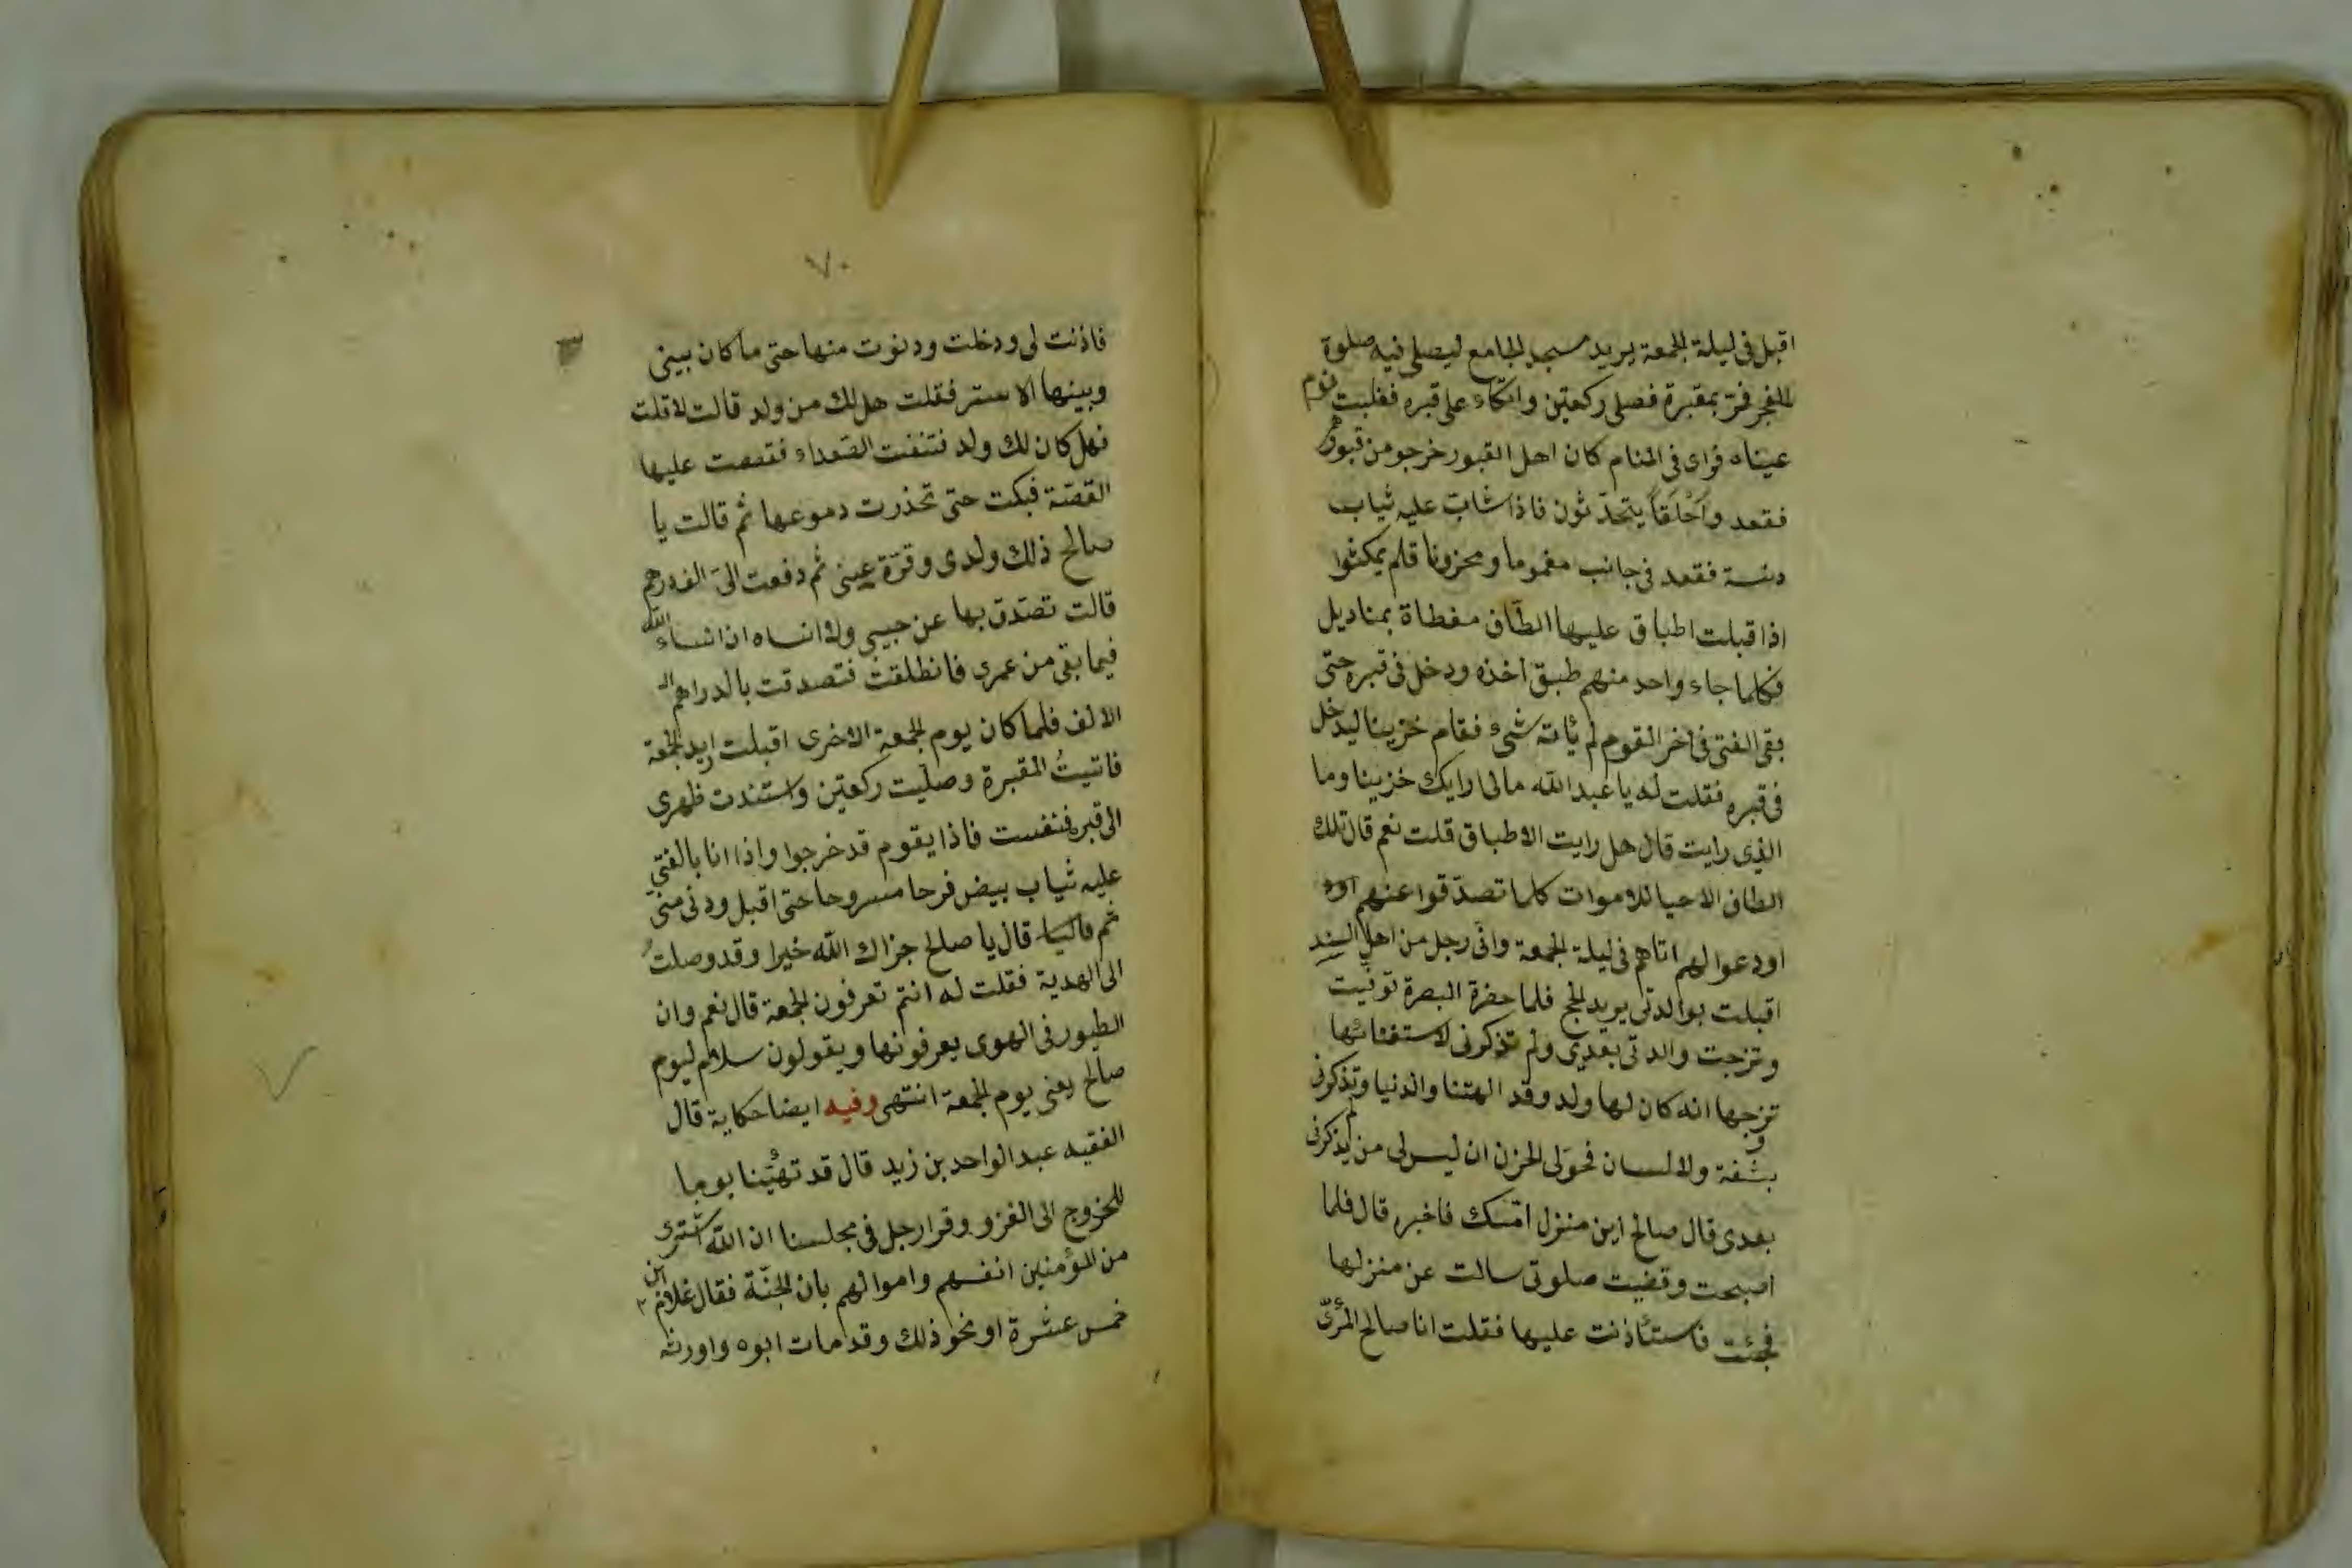 اقبل فى ليلة الجمعة يريد مسجد الجامع ليصلى فيه صلوة
الفجر فمرّ بمقبرة فصلى ركعتين واتكاء على قبره فغلبت نوم
عيناه فراى فى المنام كان اهل القبور خرجو من قبورهم
فقعد واَحْلَقاً يتحدّثون فاذا شابّ عليه ثياب
دنسة فقعد فى جانب مغموما ومحزونا فلم يمكثوا
اذا قبلت اطباق عليها الطّاف مغطاة بمناديل
فكلما جاء واحد منهم طبق اخذه ودخل فى قبره حتى
بقى الفتى فى اخر القوم لم يأته شىء فقام خزينا ليدخل
فى قبره فقلت له يا عبد الله مالى رايك خزينا وما
الذى رايت قال هل رايت الاطباق قلت نعم قال تلك
الطاف الاحيا للاموات كلما تصدّقوا عنهم اوه
اودعوا لهم اتاهم فى ليلة الجمعة وانّى رجل من اهل السند
اقبلت بوالدتى يريد الحج فلما حضرة البصرة توفيت
وتزجت والدتى بعدى ولم تذكرنى لاستغنائها
تزجها انه كان لها ولد وقد الهتنا والدنيا وتذكرنى
بشفة ولا لسان فحولى الحزن ان ليس لى من يذكرنى
بعدى قال صالح اين منزل امّك فاخبر قال فلما
اصبحت وقضيت صلوتى سالت عن منزلها
فجئت فاستأذنت عليها فقلت انا صالح المرّىّ
٧٠
فاذنت لى ودخلت ودنوت منها حتى ما كان بينى
وبينها الا ستر فقلت هل لك من ولد قالت لا قلت
فهل كان لك ولد فتنفت الصّعداء فقصصت عليها
القصّة فبكت حتى تحذرت دموعها ثم قالت يا
صالح ذلك ولدى وقرّة عينى ثم دفعت الىّ الف درهم
قالت تصدّق بها عن حبيبى ولا انساه ان اشاء الله
فيما بقى من عمرى فانطلقت فتصدقت بالدراهم الـ
الالف فلما كان يوم الجمعة الاخرى اقبلت اريد الجمعة
فاتيتُ المقبرة وصلّيت ركعتين واستندت ظهرى
الى قبر فنفست فاذا يقوم قد خرجوا واذا انا بالفتى
عليه ثياب بيض فرحا مسروحا حتى اقبل ودنى منّى
ثم قال يا صالح جزاك الله خيرا وقد وصلت
الى الهدية فقلت له انتم تعرفون الجمعة قال نعم وان
الطيور فى الهوى يعرفونها ويقولون سلام ليوم
صالح يعنى يوم الجمعة انتهى وفيه ايضا حكاية قال
الفقيه عبد الواحد بن زيد قال قد تهيّئنا يوما
للخروج الى الغزو وقرا رجل فى مجلسنا ان الله اشترى
من المؤمنين انفسهم واموالهم بان الجنّة فقال غلام ابن
خمس عشرة او نحو ذلك وقد مات ابوه واورثه